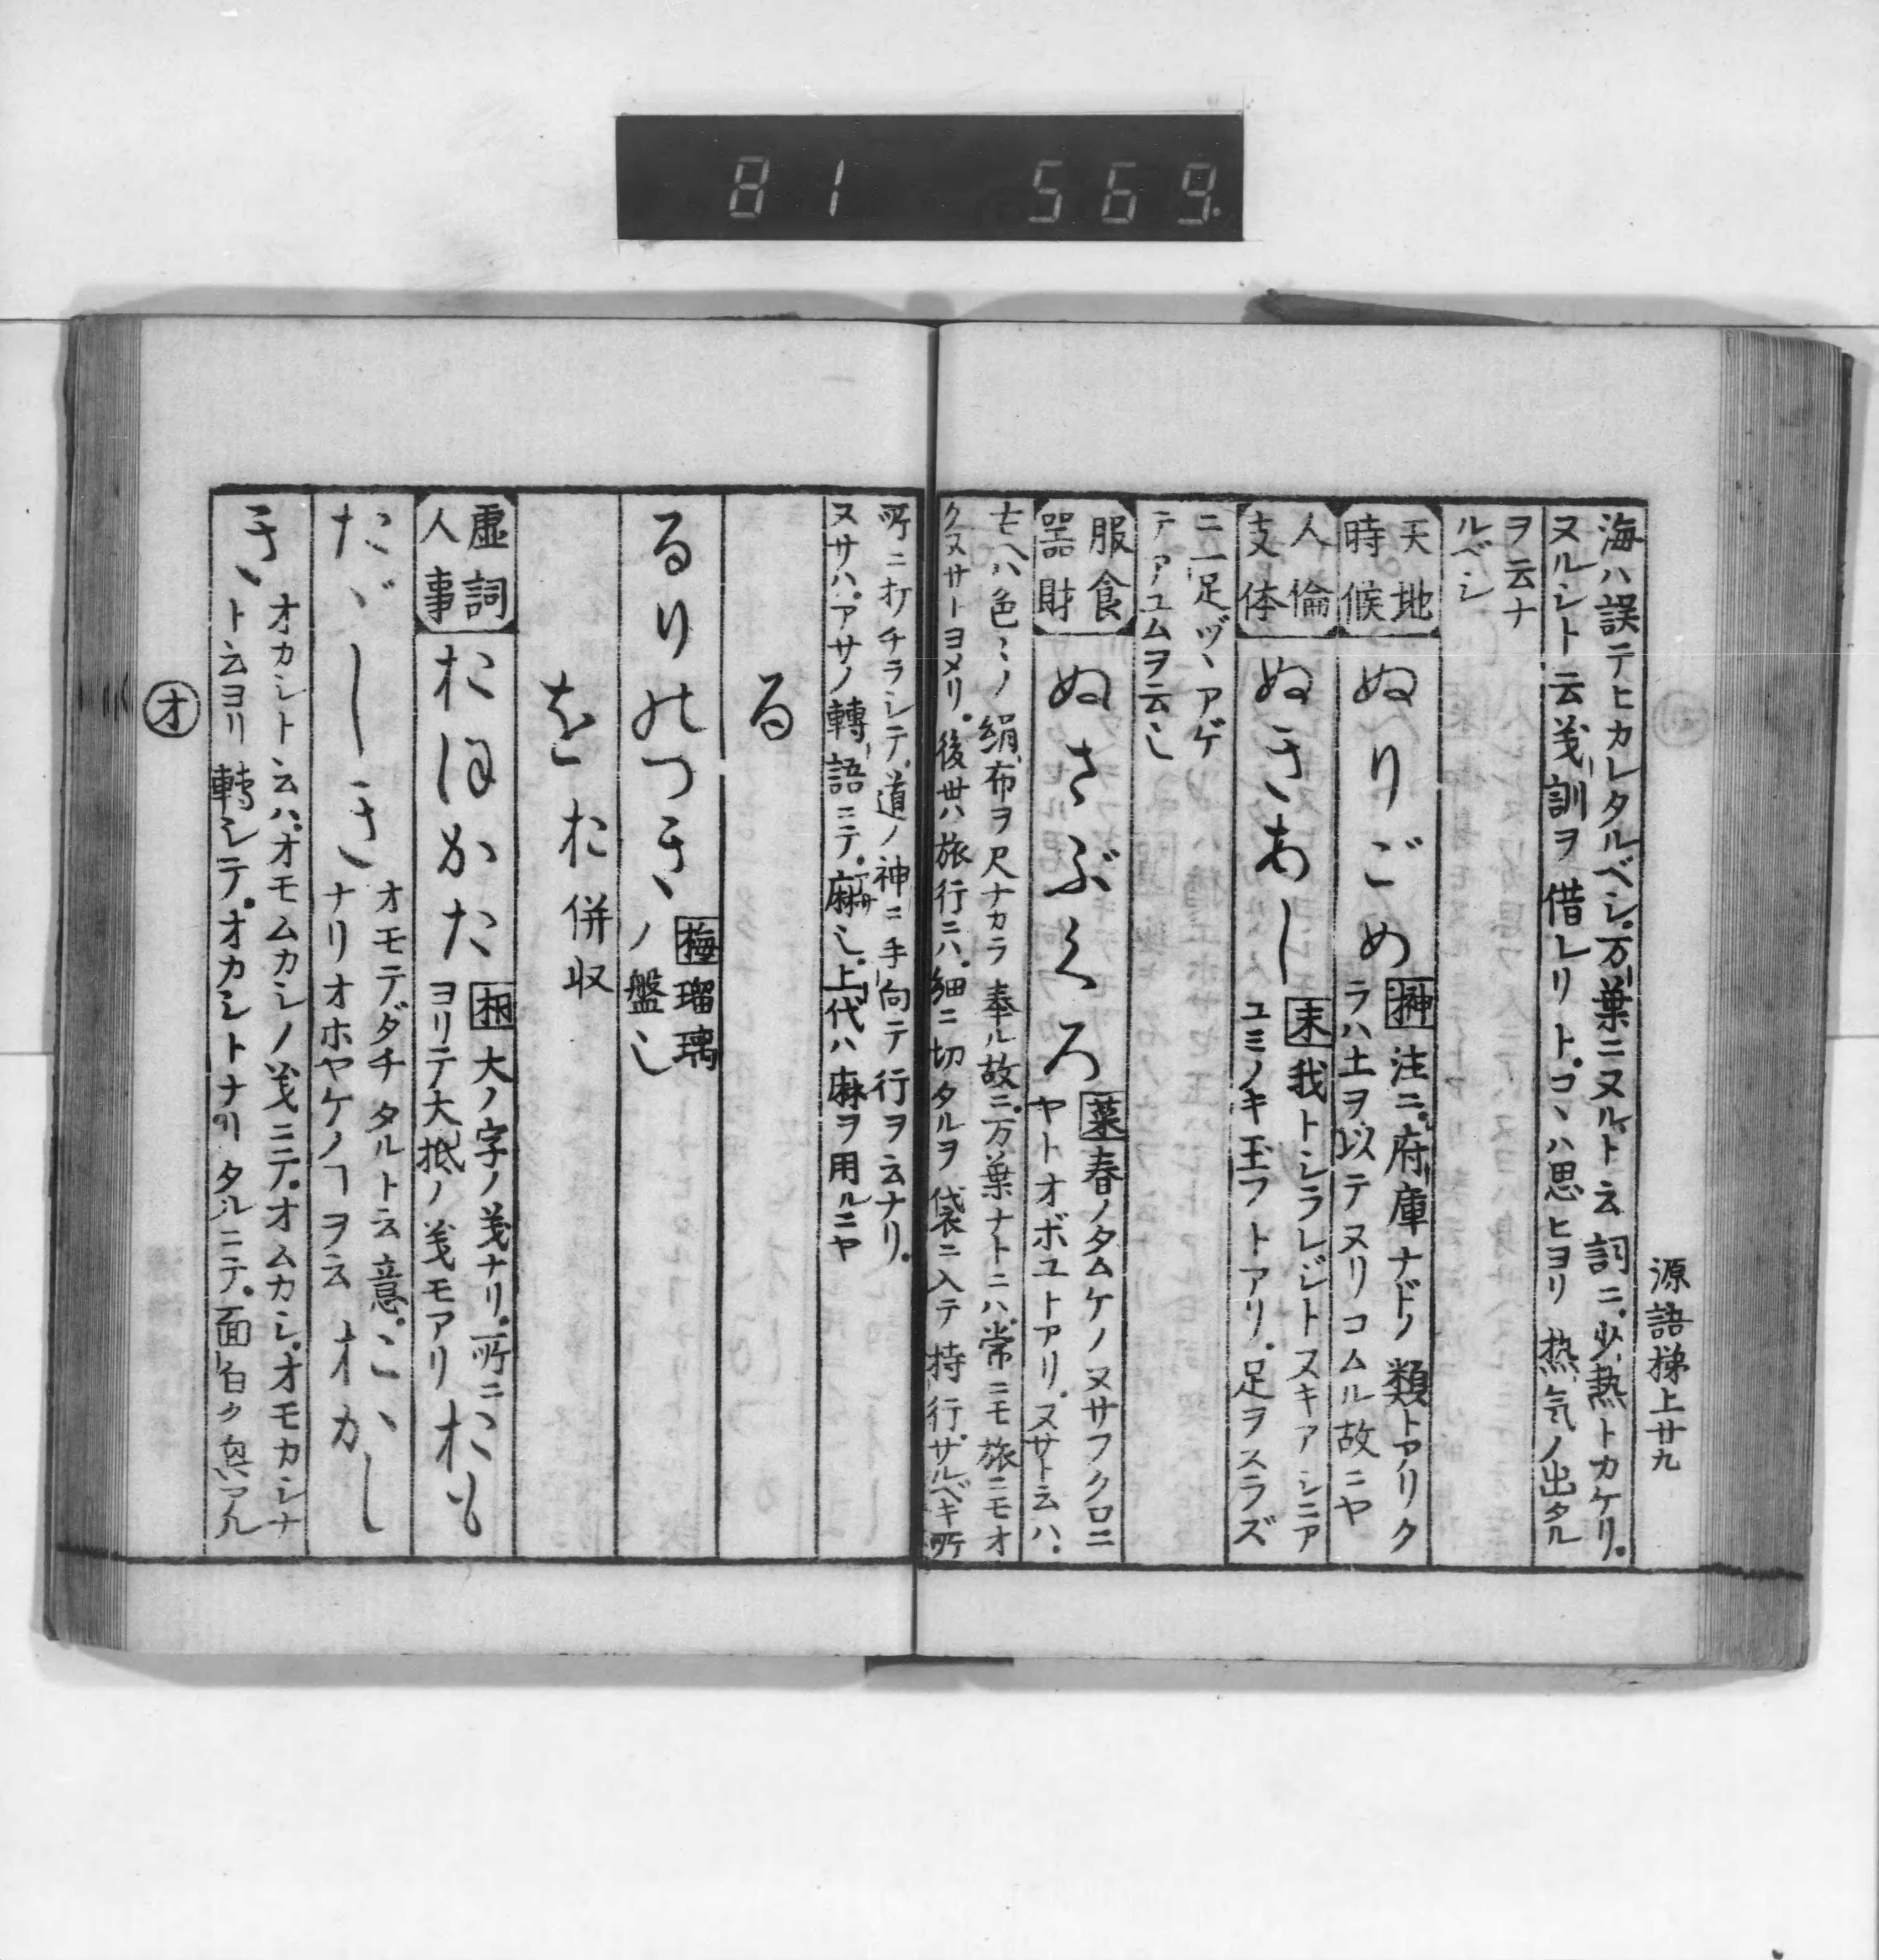 81 569
源語梯上廿九
海ハ誤テヒカレタルベシ。万葉ニヌルト云詞ニ。少熱トカケリ。
ヌルシト云義訓ヲ借レリト。コヽハ思ヒヨリ熱気ノ出タル
ヲ云ナ
ルベシ
天地
時候
ぬりごめ
榊注ニ。府庫ナドノ類トアリク
ラハ土ヲ以テヌリコムル故ニヤ
人倫
支体
ぬきあし
末我トシラレジトヌキアシニア
ユミノキ玉フトアリ。足ヲスラズ
ニ一足ヅヽアゲ
テアユムヲ云し
服食
器財
ぬさぶくろ
菜春ノタムケノヌサフクロニ
ヤトオボユトアリ。ヌサト云ハ。
古ヘハ色〻ノ絹布ヲ尺ナカラ奉ル故ニ。万葉ナトニハ。常ニモ旅ニモオ
クヌサトヨメリ。後世ハ旅行ニハ。細ニ切タルヲ袋ニ入テ持行。サルベキ所
所ニオイチラシテ。道ノ神ニ手向テ行ヲ云ナリ。
ヌサハ。アサノ轉語ニテ。麻し。上代ハ麻ヲ用ルニヤ
る
るりのつき
梅瑠璃
ノ盤し
を
お併収
虚詞
人事
おほかた
桐大ノ字ノ義ナリ。所ニ
ヨリテ大抵ノ義モアリ
おも
だゞしき
オモテダチタルト云意。
ナリオホヤケノヿヲ云
こゝ
オかし
き
オカシト云ハ。オモムカシノ義ニテ。オムカシ。オモカシナ
ト云ヨリ轉シテ。オカシトナリタルニテ。面白ク興アル
オ